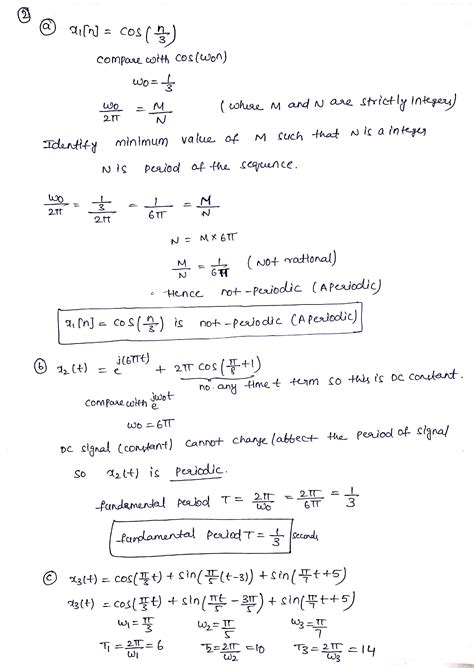 ②
ⓐ x₁[n] = cos(n/3)
compare with cos(ω₀n)
ω₀ = 1/3
ω₀/2π = M/N (where M and N are strictly Integers)
Identify minimum value of M such that N is a integer
N is period of the sequence.
ω₀/2π = (1/3)/2π = 1/6π = M/N
N = M×6π
M/N = 1/6π (Not rational)
∴ Hence not-periodic (Aperiodic)
x₁[n] = cos(n/3) is not-periodic (Aperiodic)
ⓑ x₂(t) = e^j(6πt) + 2π cos(π/8+1)
no any time t term so this is DC constant.
compare with e^jω₀t
ω₀ = 6π
DC signal (constant) cannot change/abbect the period of signal
so x₂(t) is periodic.
fundamental period T = 2π/ω₀ = 2π/6π = 1/3
fundamental period T = 1/3 seconds
ⓒ x₃(t) = cos(π/3 t) + sin(π/5(t-3)) + sin(π/7 t+5)
x₃(t) = cos(π/3 t) + sin(πt/5 - 3π/5) + sin(π/7 t+5)
ω₁ = π/3 ω₂ = π/5 ω₃ = π/7
T₁ = 2π/ω₁ = 6 T₂ = 2π/ω₂ = 10 T₃ = 2π/ω₃ = 14